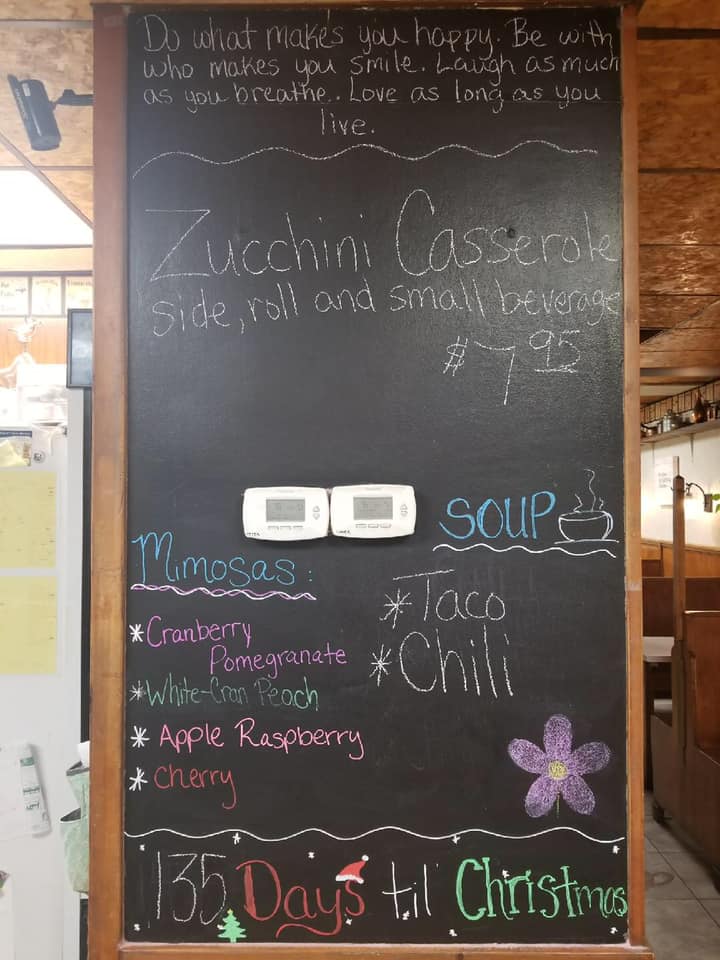 Do what makes you happy. Be with
who makes you smile. Laugh as much
as you breathe. Love as long as you
live.
Zucchini Casserole
side, roll and small beverage
$7.95
SOUP
Mimosas:
* Taco
* Chili
* Cranberry
Pomegranate
* White-Cran Peach
* Apple Raspberry
* Cherry
135 Days til' Christmas